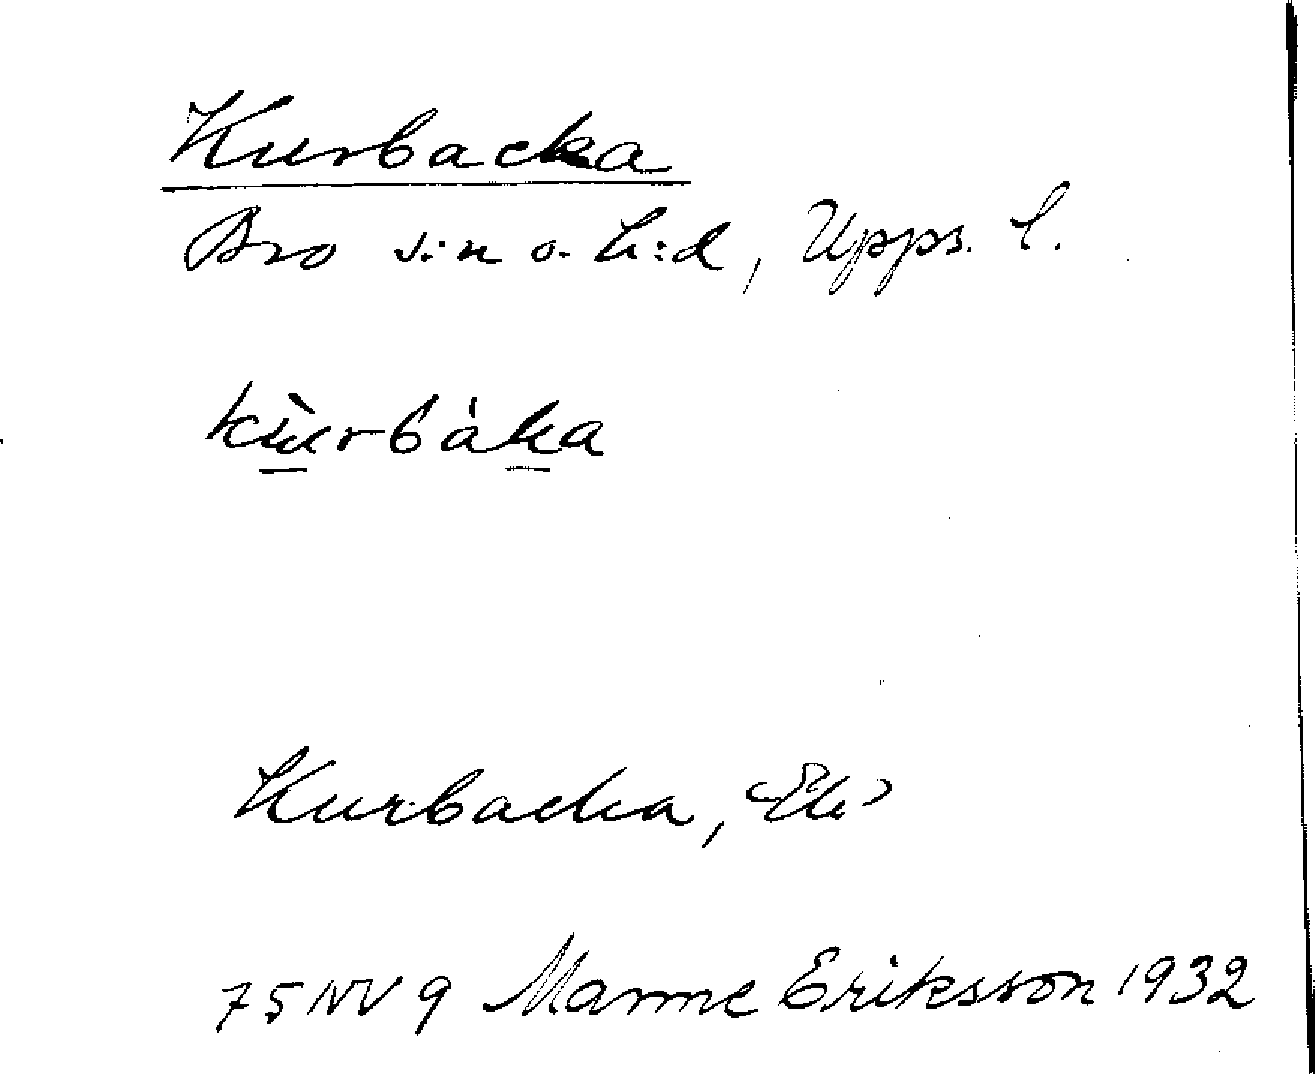 Kurbacka
Bro s:n o. h:d, Upps. l.
kùrbáka
Kurbacka, Ek
75 NV 9 Manne Eriksson 1932